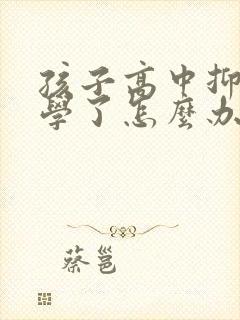 孩子高中抑
學了怎麼办
蔡邕